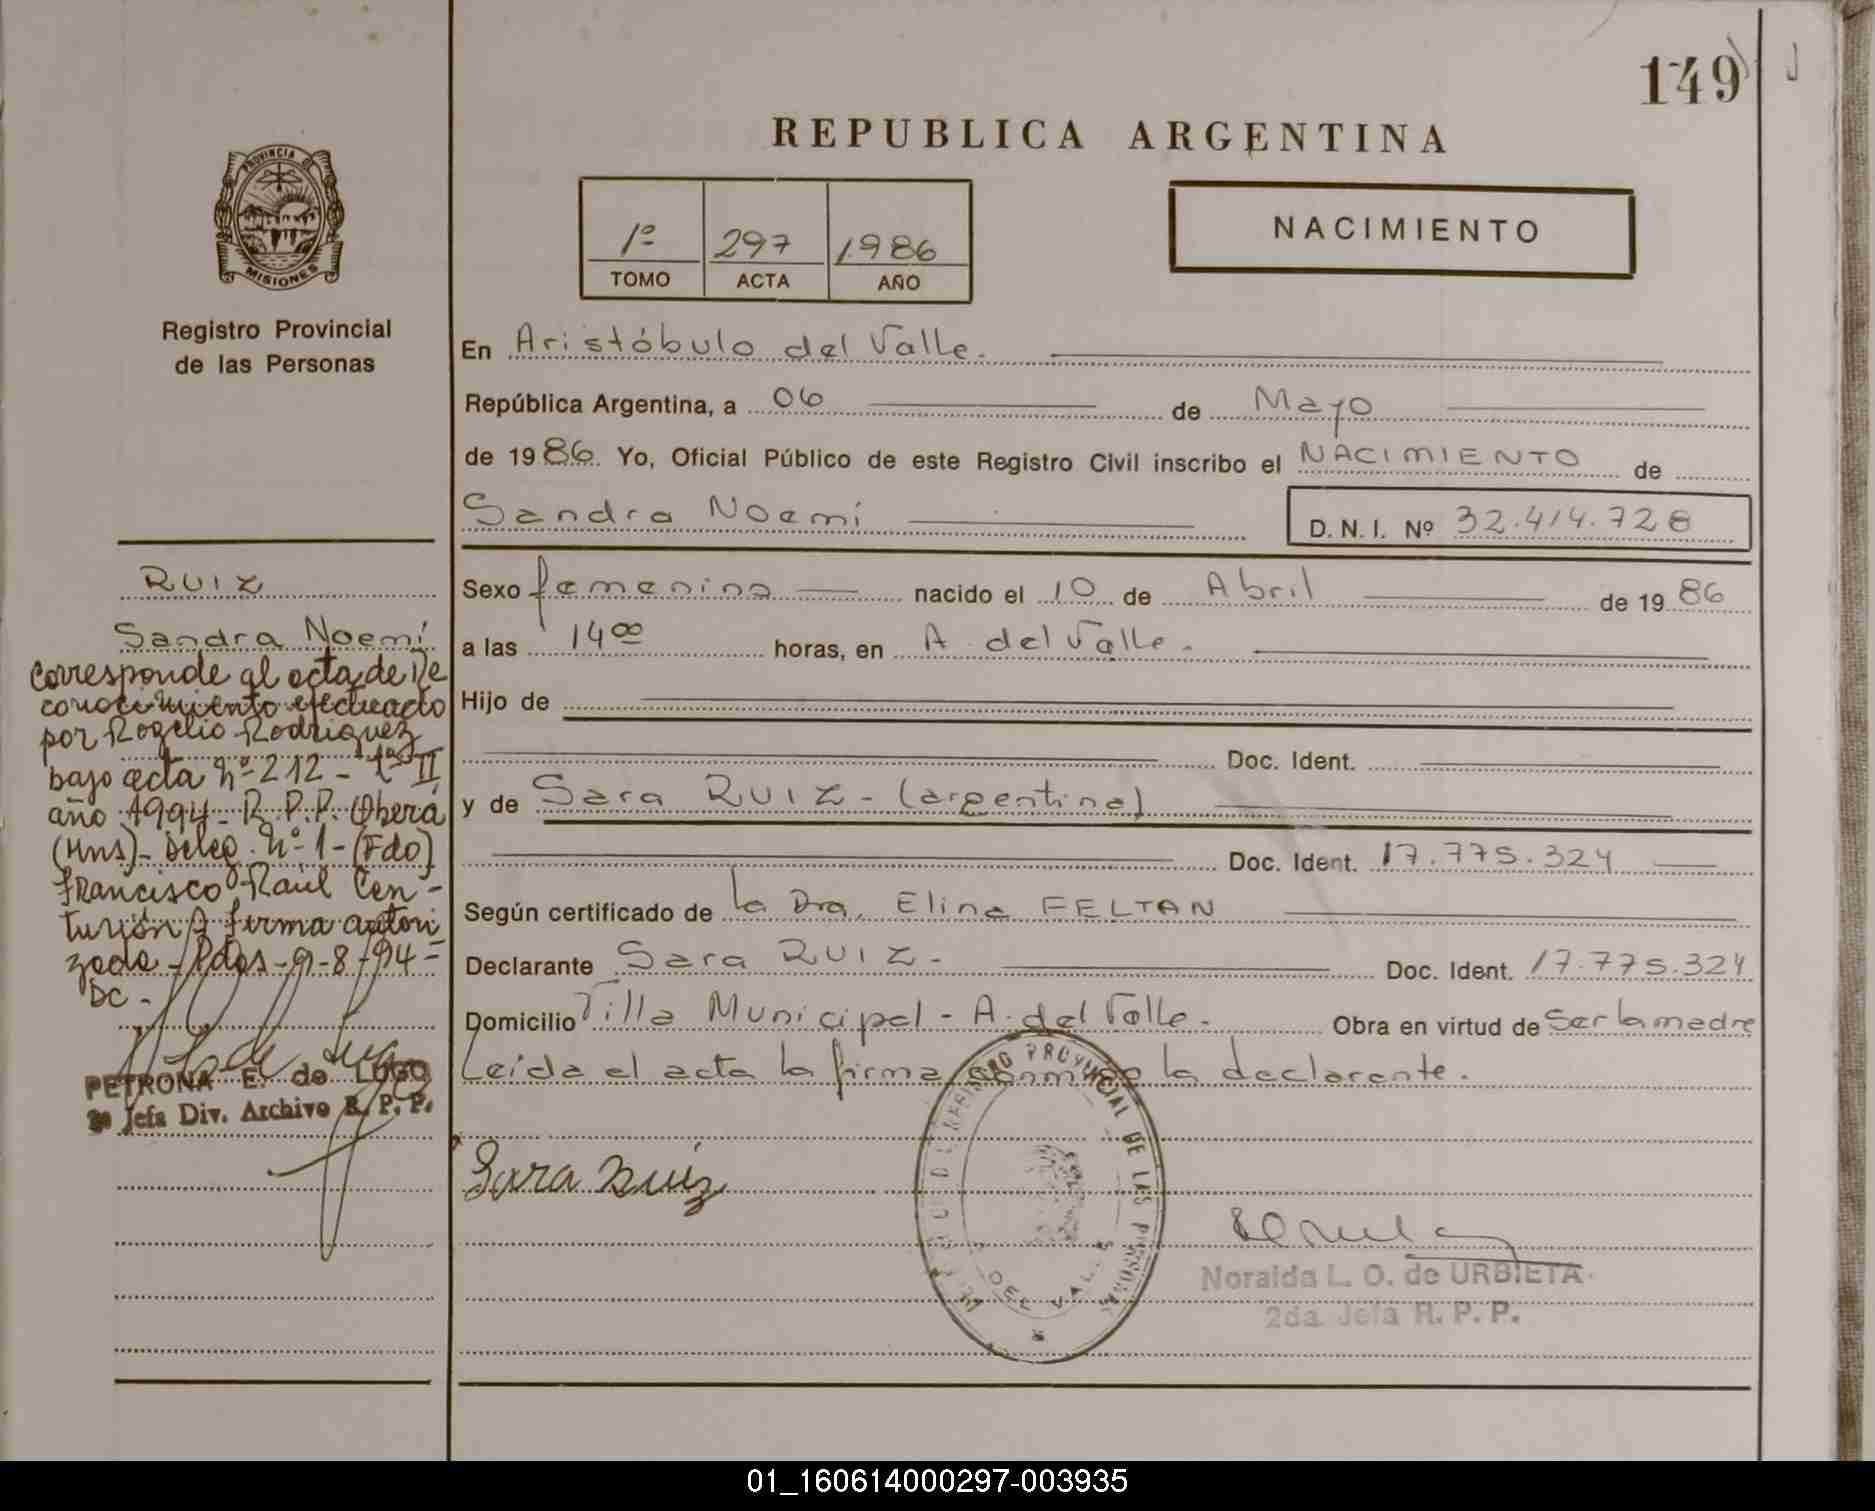 149
REPUBLICA ARGENTINA
PROVINCIA DE
MISIONES
Registro Provincial
de las Personas
1º 297 1986
TOMO ACTA AÑO
NACIMIENTO
En Aristóbulo del Valle.
República Argentina, a 06 de Mayo
de 1986. Yo, Oficial Público de este Registro Civil inscribo el NACIMIENTO de
Sandra Noemí
D. N. I. Nº 32.414.728
Sexo femenino nacido el 10 de Abril de 1986
a las 14 00 horas, en A. del Valle.
Hijo de
Doc. Ident.
y de Sara RUIZ - (argentina)
Doc. Ident. 17.775.324
Según certificado de la Dra. Elina FELTAN
Declarante Sara RUIZ. Doc. Ident. 17.775.324
Domicilio Villa Municipal - A. del Valle. Obra en virtud de Ser la madre
Leída el acta la firma conmigo la declarante.
Sara Ruiz
REGISTRO PROVINCIAL DE LAS PERSONAS
DEL VALLE
Noraida L. O. de URBIETA
2da. Jefa R. P. P.
RUIZ
Sandra Noemí
Corresponde al acta de Re
conocimiento efectuado
por Rogelio Rodriguez
bajo acta nº 212 - tº II
año 1994 - R. P. P. Oberá
(Mns) - Deleg. nº 1 - (Fdo)
Francisco Raúl Cen-
turión firma autori
zada - Pdas - 9-8-94 -
DC -
PETRONA E. de LUGO
2º Jefa Div. Archivo R. P. P.
01_160614000297-003935